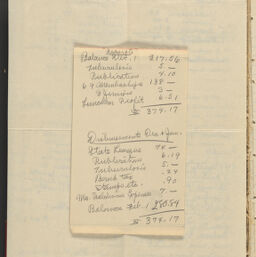 Receipts
Balance Dec. 1 217.56
Tuberculosis 5.—
Publication 4.10
69 Memberships 138—
3—
Luncheon Profit 6.51
$ 374.17
Disbursements Dec & Jan.
State League 74—
Publication 6.19
Tuberculosis 5.—
Bank tax .24
Stamps etc. .90
Expense 7.—
Balance Feb. 1 280.84
$ 374.17